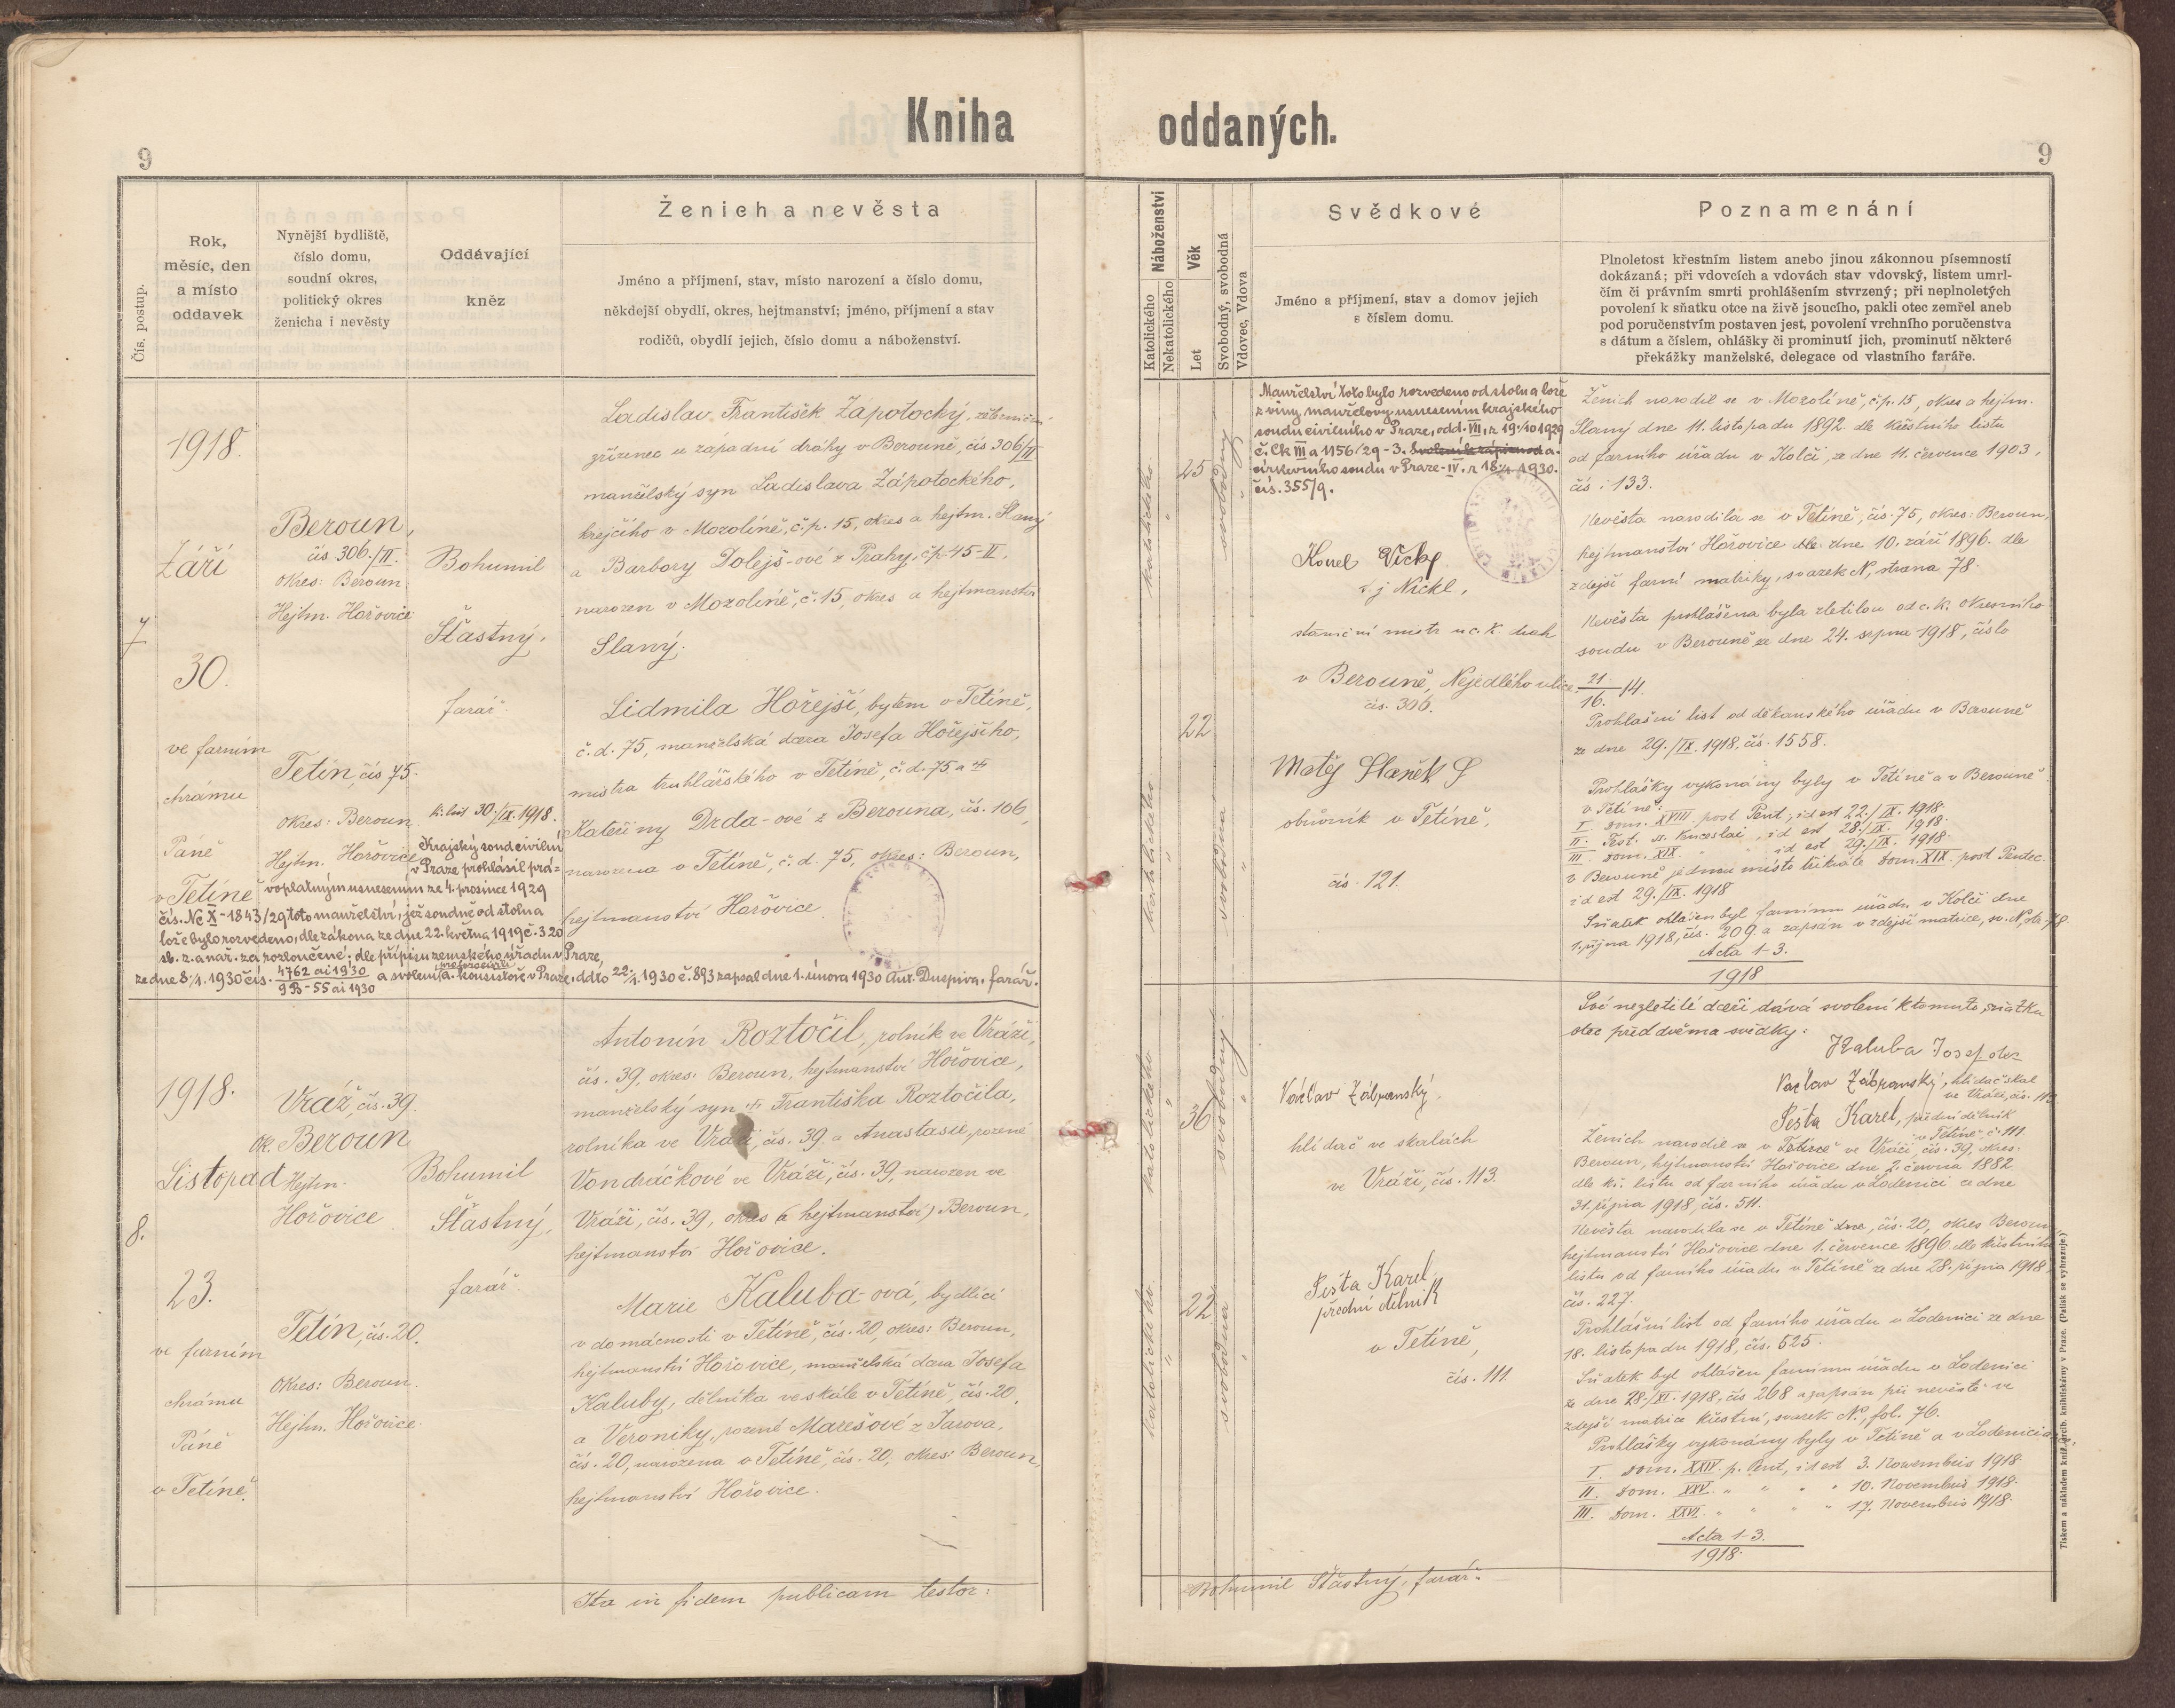 Kniha
oddaných.
9
9
Čís. postup.
Rok,
měsíc, den
a místo
oddavek
Nynější bydliště,
číslo domu,
soudní okres,
politický okres
ženicha i nevěsty
Oddávající
kněz
Ženich a nevěsta
Jméno a příjmení, stav, místo narození a číslo domu,
někdejší obydlí, okres, hejtmanství; jméno, příjmení a stav
rodičů, obydlí jejich, číslo domu a náboženství.
Náboženství
Katolického
Nekatolického
Věk
Let
Svobodný, svobodná
Vdovec, Vdova
Svědkové
Jméno a příjmení, stav a domov jejich
s číslem domu.
Poznamenání
Plnoletost křestním listem anebo jinou zákonnou písemností
dokázaná; při vdovcích a vdovách stav vdovský, listem umrl-
čím či právním smrti prohlášením stvrzený; při neplnoletých
povolení k sňatku otce na živě jsoucího, pakli otec zemřel aneb
pod poručenstvím postaven jest, povolení vrchního poručenstva
s dátum a číslem, ohlášky či prominutí jich, prominutí některé
překážky manželské, delegace od vlastního faráře.
7
1918.
Září
30.
ve farním
chrámu
Páně
v Tetíně
Beroun,
čís 306./II.
Okres: Beroun
Hejtm. Hořovice
Tetín, čís 75.
Okres: Beroun
Hejtm. Hořovice
Bohumil
Šťastný,
farář.
k. list 30./IX. 1918.
Ladislav František Zápotocký, železniční
zřízenec u západní dráhy v Berouně, čís 306/II
manželský syn Ladislava Zápotockého,
krejčího v Mozolíně, č.p. 15, okres a hejtm. Slaný
a Barbory Dolejš-ové z Prahy, čp 45-II,
narozen v Mozolíně, č. 15, okres a hejtmanství
Slaný.
Lidmila Hořejší, bytem v Tetíně,
č. d. 75, manželská dcera Josefa Hořejšího,
mistra truhlářského v Tetíně, č. d. 75 a
Kateřiny Drda-ové z Berouna, čís. 106,
narozena v Tetíně, č. d. 75, okres: Beroun,
hejtmanství Hořovice.
Krajský soud civilní
v Praze prohlásil prá=
voplatným usnesením ze 4. prosince 1929
čís. Nc X-1843/29 toto manželství, jež soudně od stolu a
lože bylo rozvedeno, dle zákona ze dne 22. května 1919 č. 320
sb. z. a nař. za rozloučené; dle přípisu zemského úřadu v Praze,
ze dne 8./1. 1930 čís. 4762 ai 1930 / 9B-55 ai 1930 a svolení a. konsistoře v Praze, ddto 22./1. 1930 č. 893 zapsal dne 1. února 1930 Ant. Duspiva, farář.
katolického
"
25
svobodný
"
22
katolického
"
svobodná
"
Manželství toto bylo rozvedeno od stolu a lože
z viny manželovy usnesením krajského
soudu civilního v Praze, odd. VII, z 19./10 1929
č. Ck III a 1156/29-3. a.
církevního soudu v Praze-IV. z 18./1. 1930.
čís. 355/9.
staniční mistr u c. k. drah
v Berouně, Nejedlého ulice
čís. 306.
Matěj Staněk
obuvník v Tetíně,
čís. 121.
Ženich narodil se v Mozolíně, č.p. 15, okres a hejtm.
Slaný dne 11. listopadu 1892 dle křestního listu
od farního úřadu v Kolči, ze dne 11. července 1903,
čís: 133.
Nevěsta narodila se v Tetíně, čís. 75, okres: Beroun,
hejtmanství Hořovice dne 10. září 1896. dle
zdejší farní matriky, svazek N, strana 78.
Nevěsta prohlášena byla zletilou od c. k. okresního
soudu v Berouně ze dne 24. srpna 1918, číslo
21/16. 14.
Prohlašní list od děkanského úřadu v Berouně
ze dne 29./IX. 1918, čís. 1558.
Prohlášky vykonány byly v Tetíně a v Berouně
v Tetíně:
I. dom. XVIII. post Pent, id est 22./IX. 1918.
II. Fest. id est 28./IX. 1918.
III. dom. XIX. " id est 29./IX. 1918
v Berouně jednou místo třikráte dom. XIX. post Pentec.
id est 29./IX. 1918
Sňatek ohlášen byl farnímu úřadu v Kolči dne
1. října 1918, čís. 209 a zapsán v zdejší matrice, sv. N, str. 78
Acta 1-3.
1918
8.
1918.
Listopad
23.
ve farním
chrámu
Páně
v Tetíně.
Vráž, čís. 39.
ok. Beroun
Hejtm.
Hořovice
Tetín, čís. 20.
Okres: Beroun.
Hejtm. Hořovice.
Bohumil
Šťastný,
farář.
Antonín Roztočil, rolník ve Vráži,
čís. 39, okres: Beroun, hejtmanství Hořovice,
manželský syn Františka Roztočila,
rolníka ve Vráži, čís. 39. a Anastasie, rozené
Vondráčkové ve Vráži, čís. 39, narozen ve
Vráži, čís. 39, okres (a hejtmanství) Beroun,
hejtmanství Hořovice.
Marie Kaluba-ová, bydlící
v domácnosti v Tetíně, čís. 20, okres: Beroun,
hejtmanství Hořovice, manželská dcera Josefa
Kaluby, dělníka ve skále v Tetíně, čís. 20,
a Veroniky, rozené Marešové z Jarova,
čís. 20, narozena v Tetíně, čís. 20, okres: Beroun,
hejtmanství Hořovice.
katolického
"
36
svobodný
"
katolického
"
22
svobodná
"
Václav Zábranský,
hlídač ve skalách
ve Vráži, čís. 113.
Šesta Karel
přední dělník
v Tetíně,
čís. 111.
Své nezletilé dceři dává svolení k tomuto sňatku
otec před dvěma svědky:
Kaluba Josef otec
Václav Zábranský, hlídač skal
ve Vráži, čís. 113
Šesta Karel, přední dělník
v Tetíně č. 111.
Ženich narodil se v Tetíně ve Vráži, čís. 39, okres.
Beroun, hejtmanství Hořovice dne 2. června 1882
dle kř. listu od farního úřadu v Loděnici ze dne
31. října 1918, čís. 511.
Nevěsta narodila se v Tetíně dne, čís. 20, okres Beroun
hejtmanství Hořovice dne 1. července 1896 dle křestního
listu od farního úřadu v Tetíně ze dne 28. října 1918,
čís. 227.
Prohlášní list od farního úřadu v Loděnici ze dne
18. listopadu 1918, čís. 525.
Sňatek byl ohlášen farnímu úřadu v Loděnici
ze dne 28./XI. 1918, čís 268 a zapsán při nevěstě ve
zdejší matrice křestní, svazek N, fol. 76.
Prohlášky vykonány byly v Tetíně a v Loděnici
I. dom. XXIV. p. Pent, id est 3. Novembris 1918.
II. dom. XXV. " " " " 10. Novembris 1918.
III. dom. XXVI. " " " " 17. Novembris 1918.
Acta 1-3.
1918.
Ita in fidem publicam testor:
Bohumil Šťastný, farář.
Tiskem a nákladem kníž. arcib. knihtiskárny v Praze. (Patisk se vyhrazuje.)